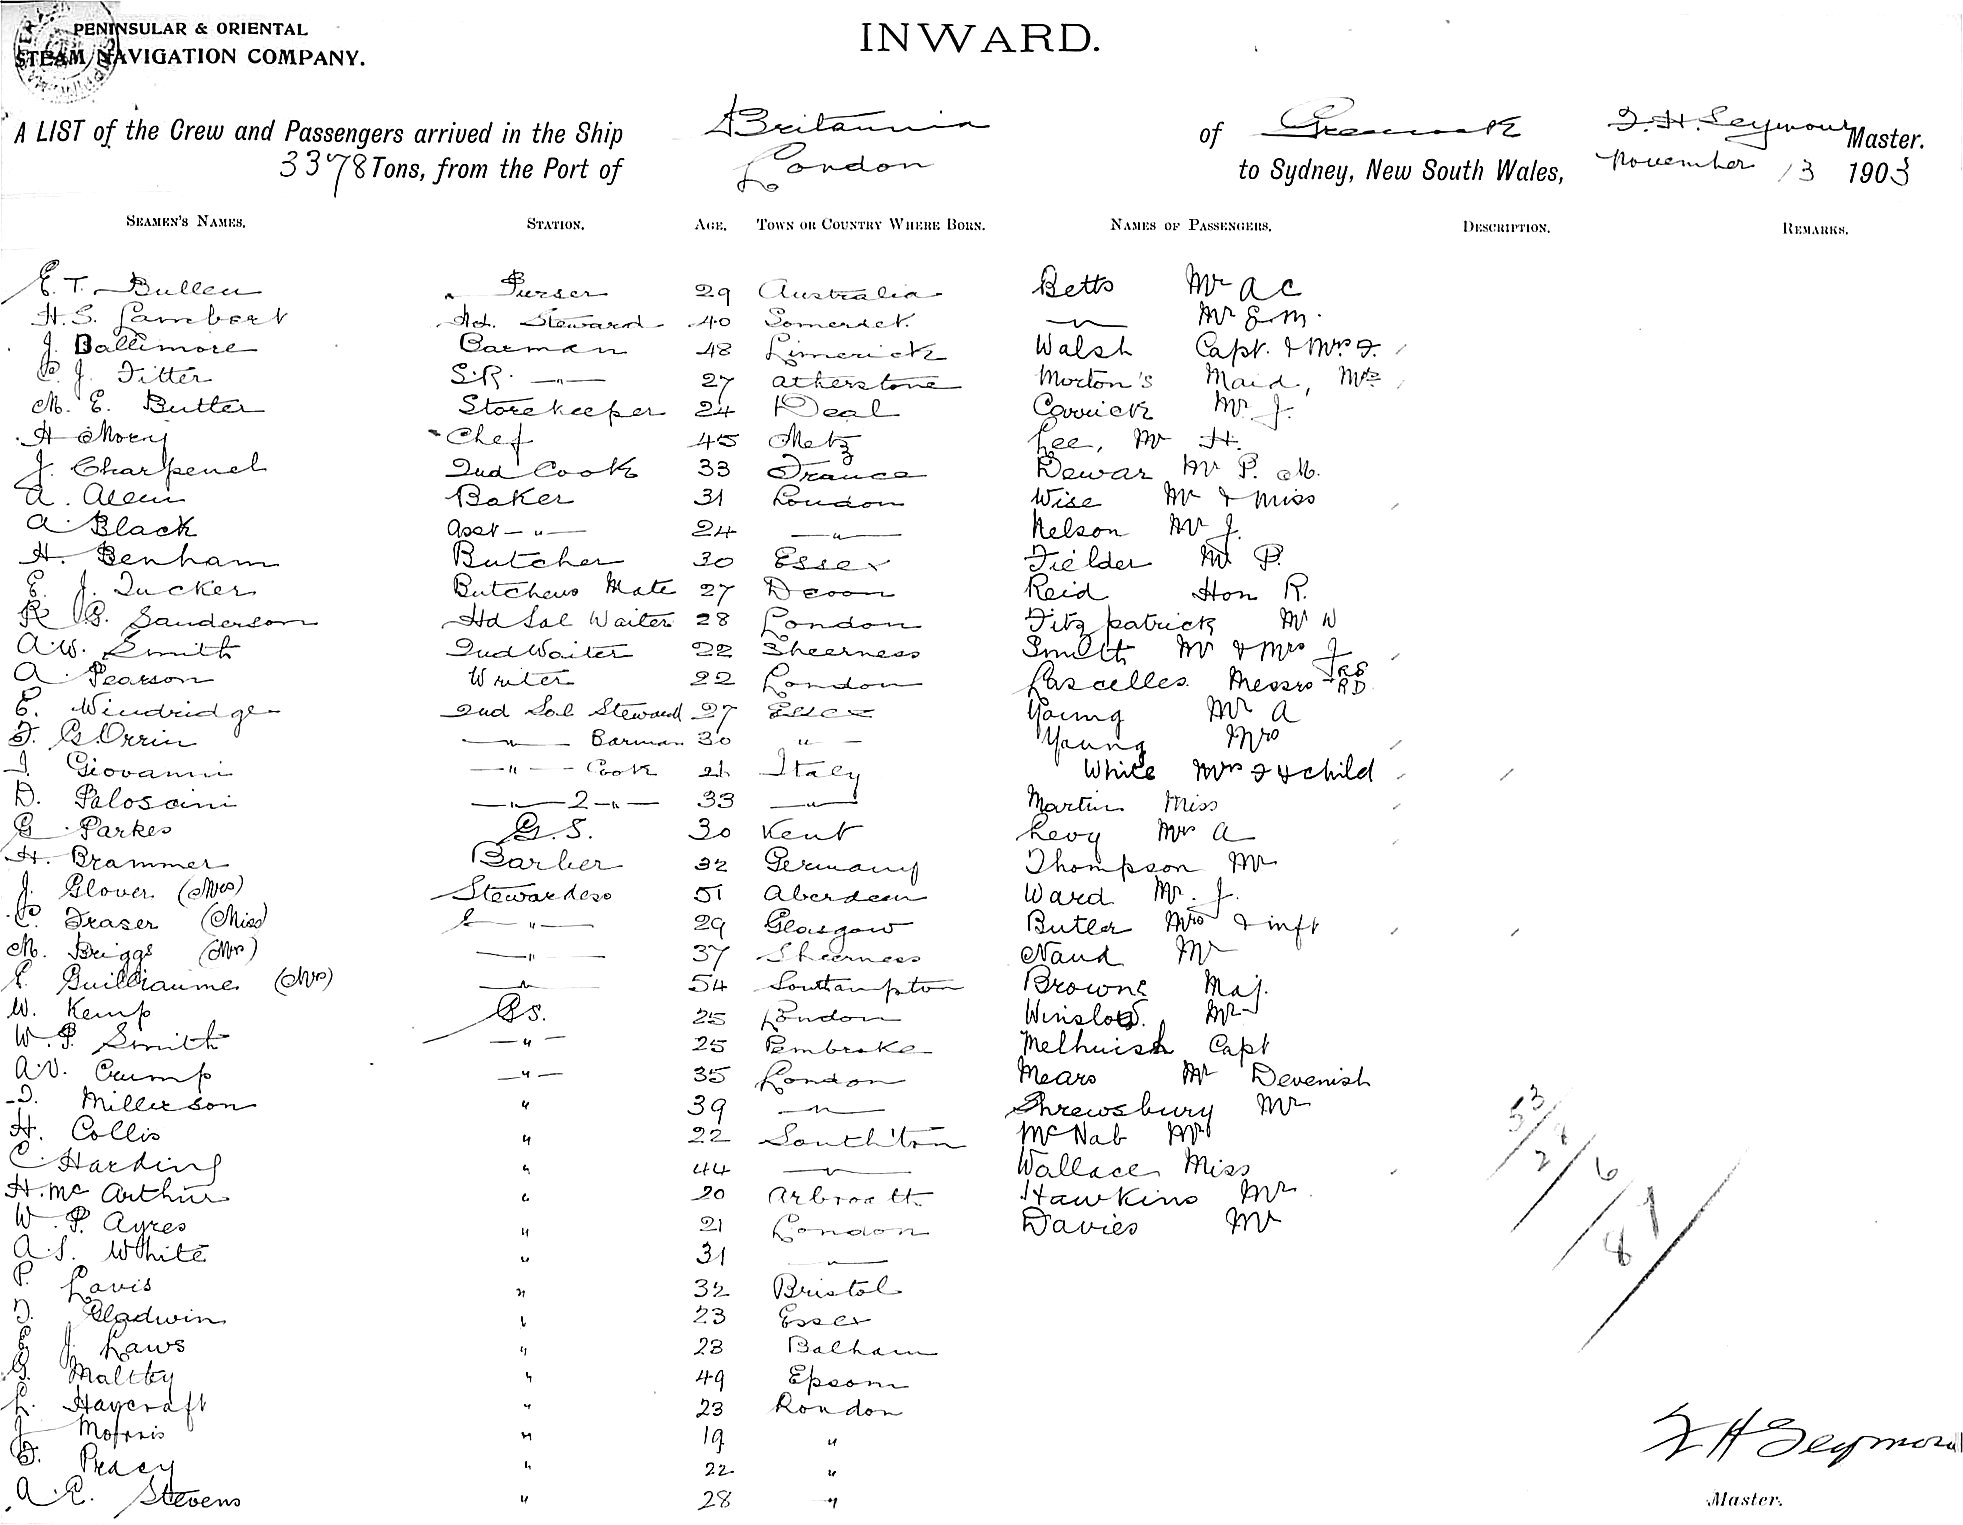 PENINSULAR & ORIENTAL
STEAM NAVIGATION COMPANY.
INWARD.
A LIST of the Crew and Passengers arrived in the Ship Britannia of Greenock F. H. Seymour Master.
3378 Tons, from the Port of London to Sydney, New South Wales, November 13 1903
SEAMEN'S NAMES. STATION. AGE. TOWN OR COUNTRY WHERE BORN. NAMES OF PASSENGERS. DESCRIPTION. REMARKS.
E. T. Bullen Purser 29 Australia Betts Mr A C
H. S. Lambert Hd. Steward 40 Somerset — " — Mr E. M.
J. Baltimore Barman 48 Limerick Walsh Capt. & Mrs F.
C. J. Fitter S.R. — " — 27 Atherstone Morton's Maid, Mrs
M. E. Butter Storekeeper 24 Deal Carrick Mr J.
H Chef 45 Metz Lee, Mr H.
J. Charpenel 2nd Cook 33 France Dewar Mr P. M.
A. Allen Baker 31 London Wise Mr & Miss
A. Black Asst — " — 24 — " — Nelson Mr J.
H. Benham Butcher 30 Essex Fielder Mr P.
E. J. Tucker Butchers Mate 27 Devon Reid Hon R.
R G. Sanderson Hd Sal Waiter 28 London Fitzpatrick Mr W
A. W. Smith 2nd Waiter 22 Sheerness Smith Mr & Mrs J
A. Pearson Writer 22 London Lascelles Messrs R E R D
E. Windridge 2nd Sal Steward 27 Essex Young Mr A
F. G. Orrin — " — Barman 30 " — Young Mrs
I. Giovanni — " — Cook 21 Italy White Mrs F & child
D. Palosaini — " — 2 — " — 33 — " — Martin Miss
G. Parkes G. S. 30 Kent Levy Mrs A
H. Brammer Barber 32 Germany Thompson Mr
J. Glover (Mrs) Stewardess 51 Aberdeen Ward Mr. J.
C. Fraser (Miss) — " — 29 Glasgow Butler Mrs & inft
M. Briggs (Mrs) — " — 37 Sheerness Naud Mr
E. Guilliaume (Mrs) — " — 54 Southampton Browne Maj.
W. Kemp G S. 25 London Winslow Mr
W. P. Smith — " — 25 Pembroke Melhuish Capt
A. V. Crump — " — 35 London Mears Mr Devenish
Millerson " 39 — " — Shrewsbury Mr
H. Collis " 22 South'ton McNab Mr
C. Harding " 44 — " — Wallace Miss
H. McArthur " 20 Arbroath Hawkins Mr
W. P. Ayres " 21 London Davies Mr
A. S. White " 31 — " —
P. Lavis " 32 Bristol
D. Gladwin " 23 Essex
E J. Laws " 23 Balham
G. Maltby " 49 Epsom
L. Haycraft " 23 London
J Morris " 19 "
F. Pracy " 22 "
A. E. Stevens " 28 "
53/28/6/87
F H Seymour
Master.